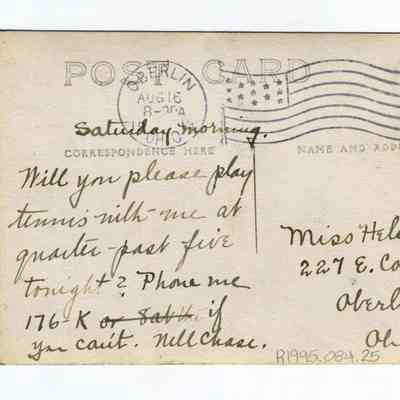 POST CARD
OBERLIN
AUG 16
8-30A
OHIO
Saturday morning.
CORRESPONDENCE HERE
NAME AND ADD
Will you please play
tennis with me at
quarter-past five
tonight? Phone me
176-K or Sat if
you can't. Nell Chase.
Miss Hel
227 E. Co
Oberl
Oh
R1995.084.25